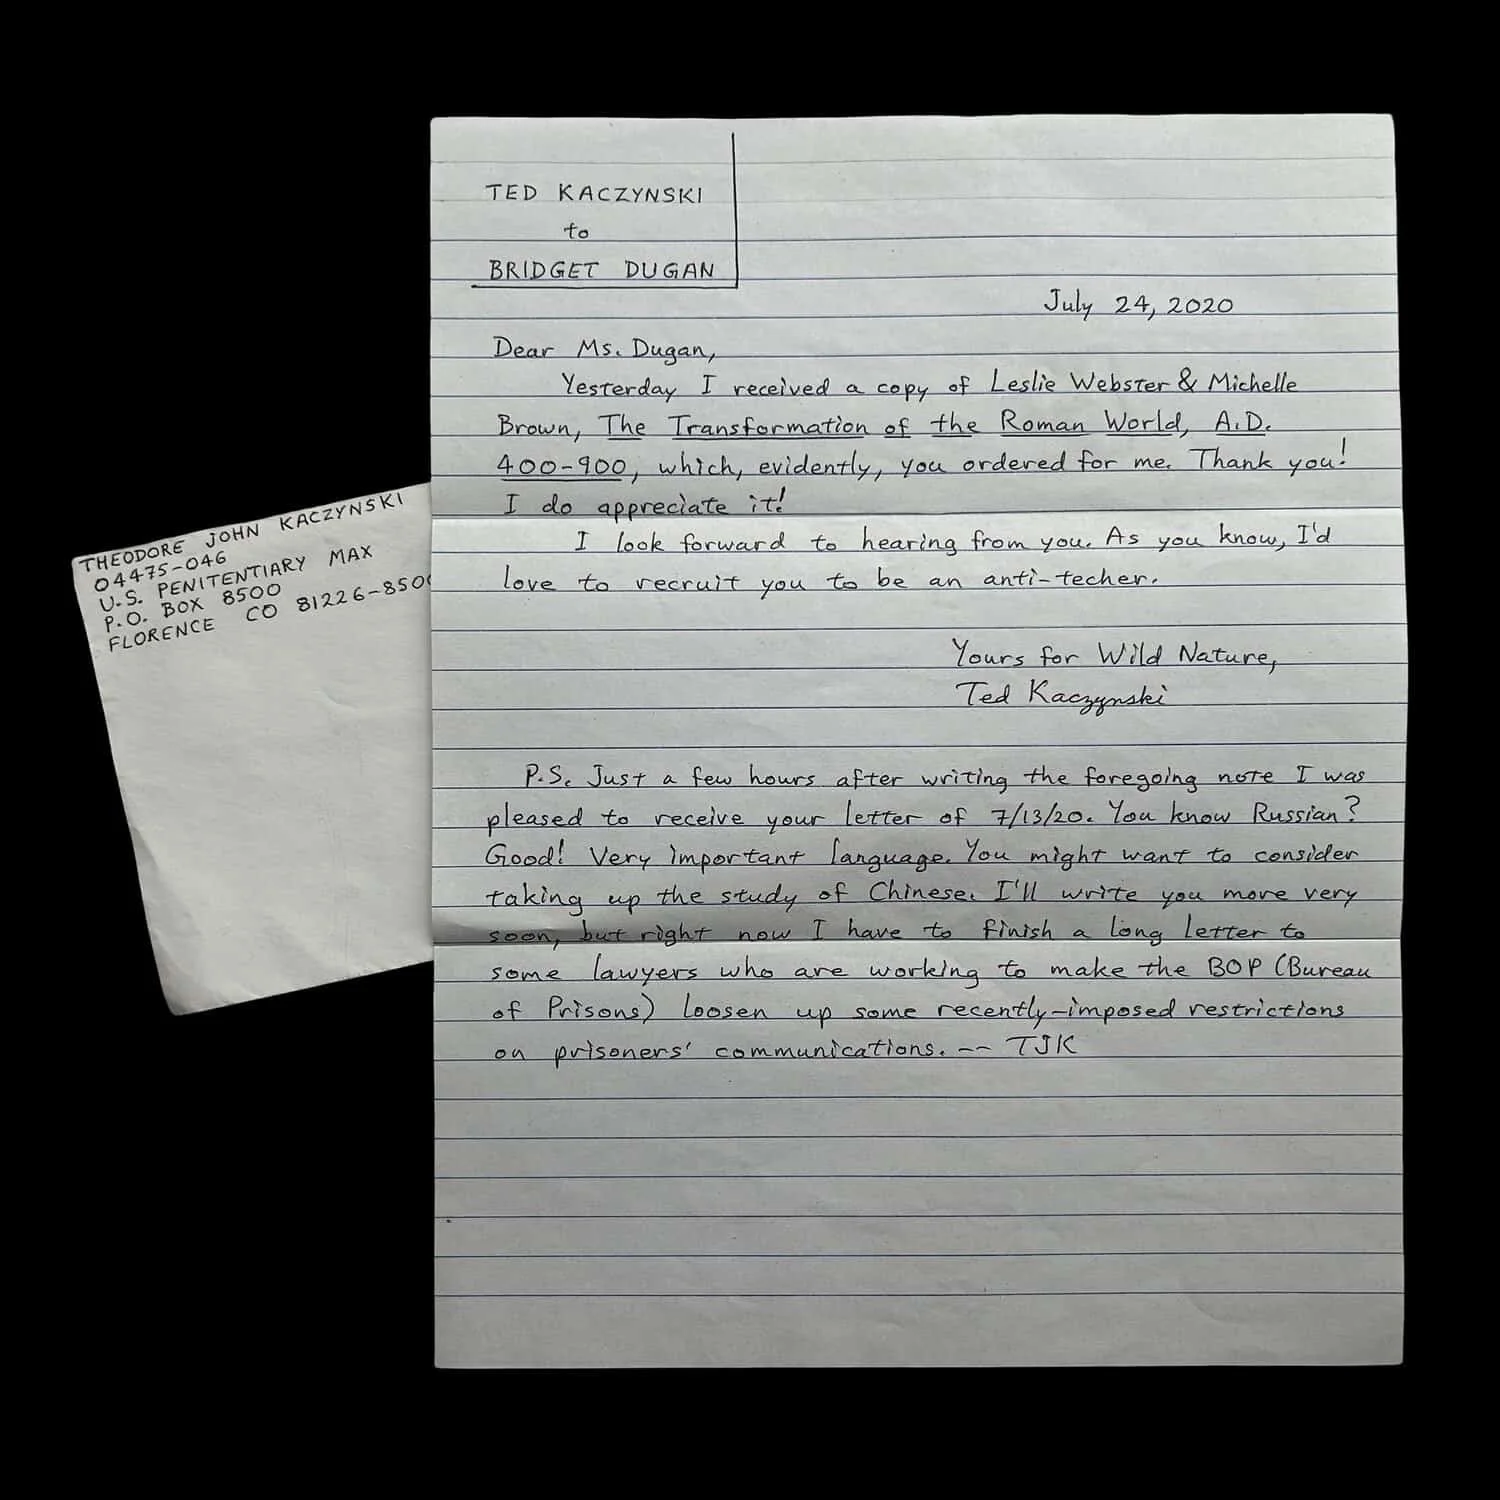 TED KACZYNSKI
to
BRIDGET DUGAN
July 24, 2020
Dear Ms. Dugan,
Yesterday I received a copy of Leslie Webster & Michelle
Brown, The Transformation of the Roman World, A.D.
400-900, which, evidently, you ordered for me. Thank you!
I do appreciate it!
I look forward to hearing from you. As you know, I'd
love to recruit you to be an anti-techer.
Yours for Wild Nature,
Ted Kaczynski
P.S. Just a few hours after writing the foregoing note I was
pleased to receive your letter of 7/13/20. You know Russian?
Good! Very important language. You might want to consider
taking up the study of Chinese. I'll write you more very
soon, but right now I have to finish a long letter to
some lawyers who are working to make the BOP (Bureau
of Prisons) loosen up some recently-imposed restrictions
on prisoners' communications. -- TJK
THEODORE JOHN KACZYNSKI
04475-046
U.S. PENITENTIARY MAX
P.O. BOX 8500
FLORENCE CO 81226-850